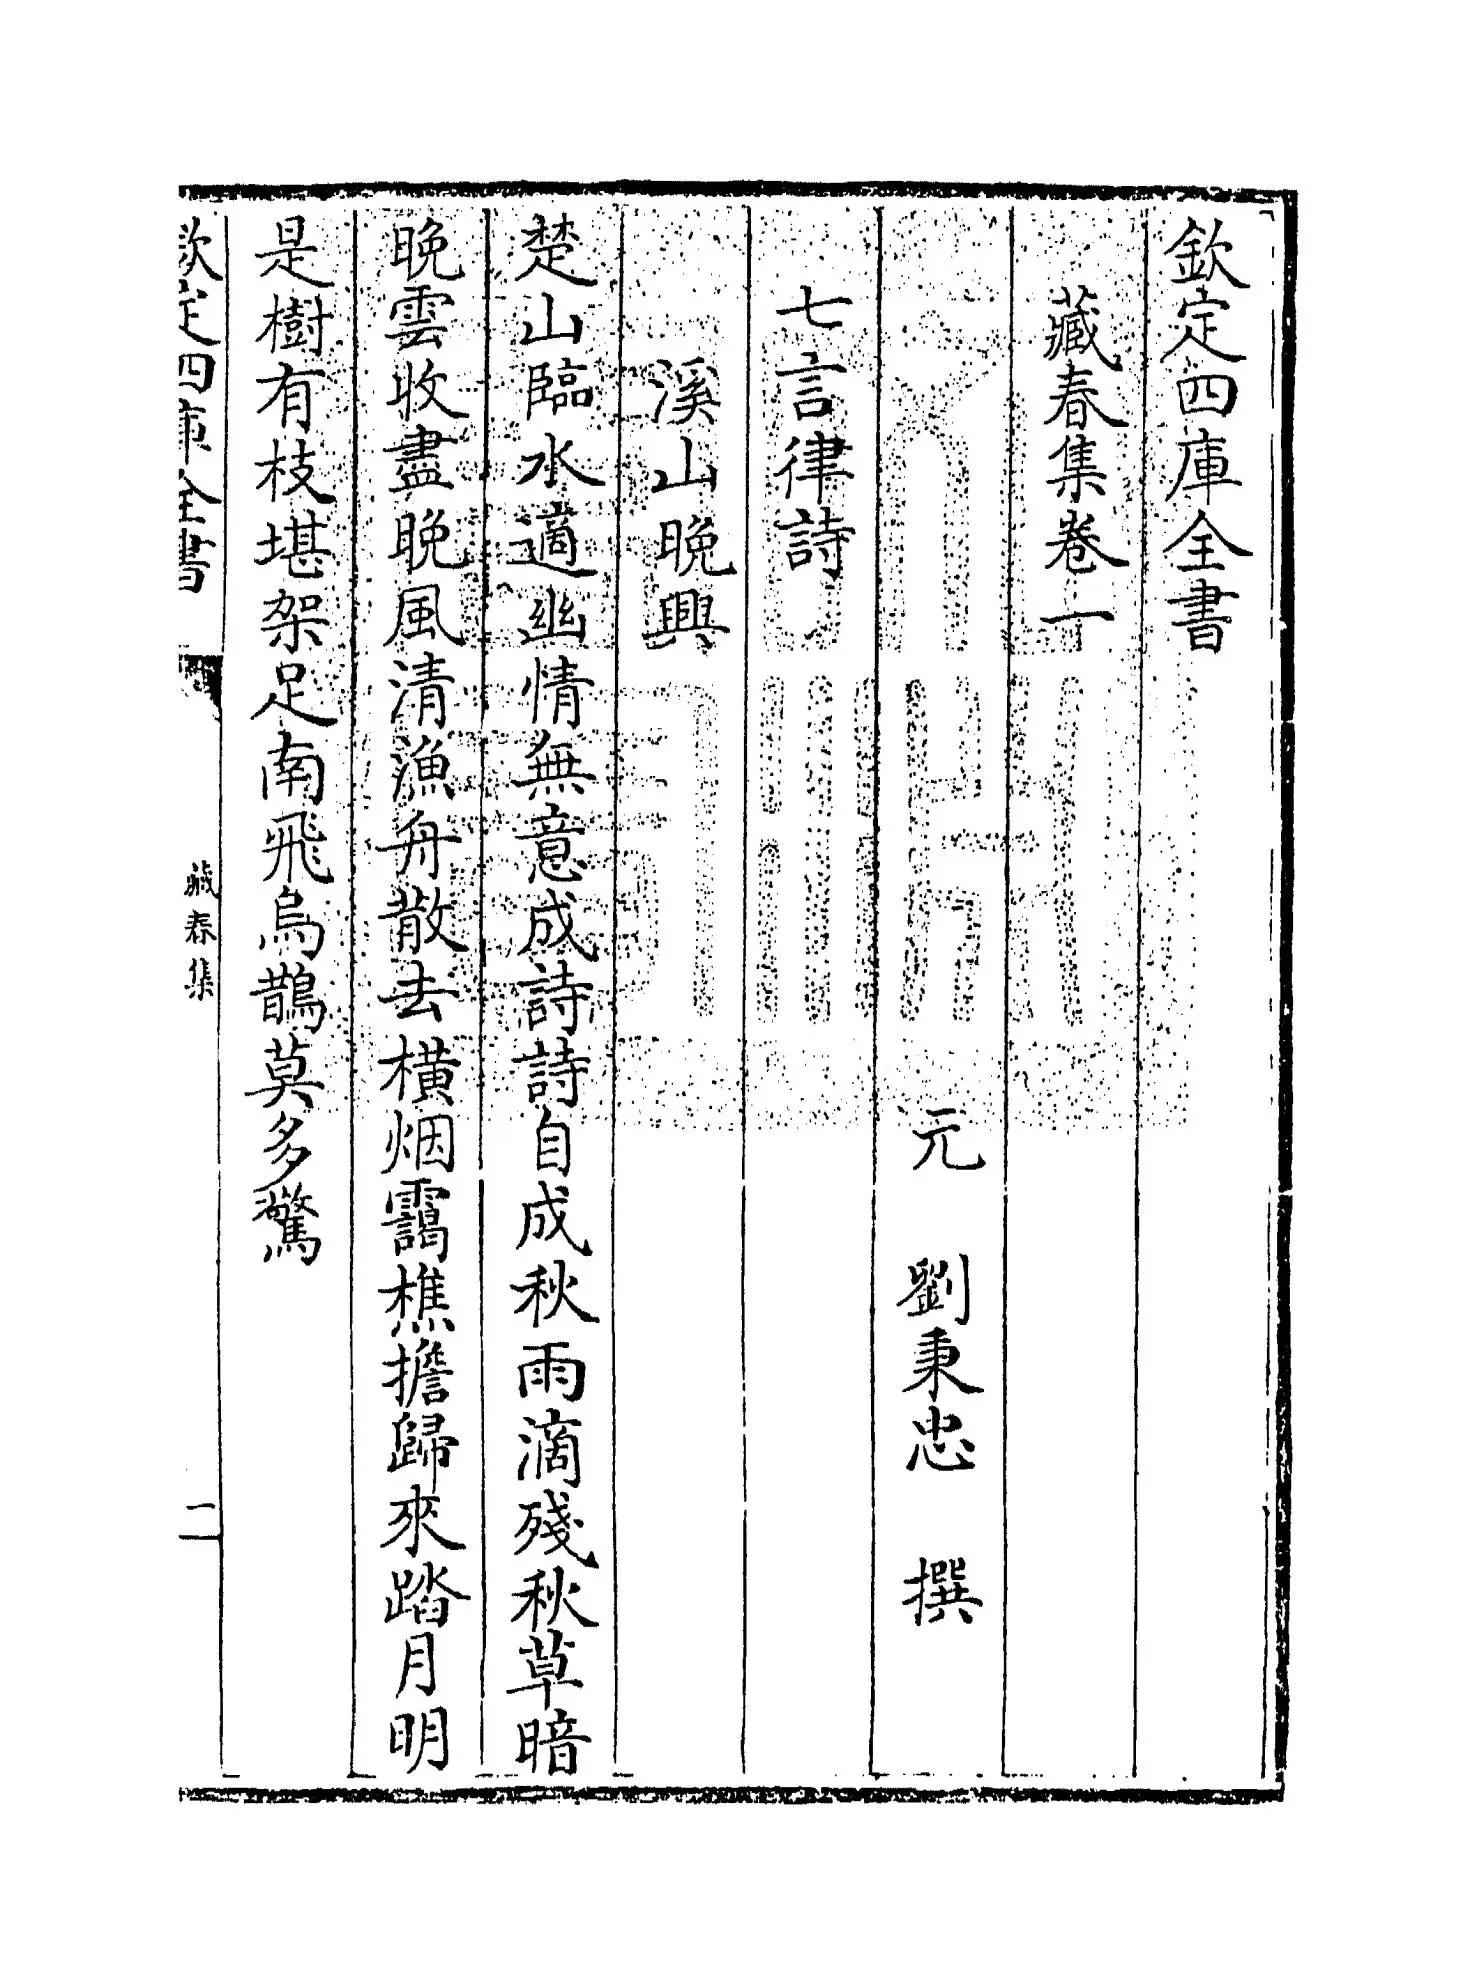 欽定四庫全書
藏春集卷一
元 劉秉忠 撰
七言律詩
溪山晚興
楚山臨水適幽情無意成詩詩自成秋雨滴殘秋草暗
晚雲收盡晚風清漁舟散去橫烟靄樵擔歸來踏月明
是樹有枝堪架足南飛烏鵲莫多驚
欽定四庫全書
藏春集
一